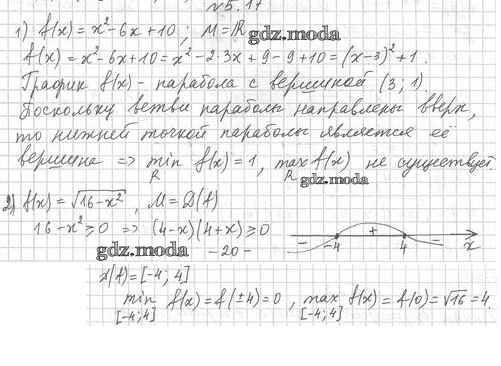 №5.17
1) f(x) = x² - 6x + 10 ; M = ℝ gdz.moda
f(x) = x² - 6x + 10 = x² - 2·3x + 9 - 9 + 10 = (x-3)² + 1.
График f(x) - парабола с вершиной (3; 1)
Поскольку ветви параболы направлены вверх,
то нижней точкой параболы является её
вершина => min f(x) = 1, max f(x) не существует.
ℝ ℝ gdz.moda
2) f(x) = √(16-x²), M = D(f)
16 - x² ≥ 0 => (4-x)(4+x) ≥ 0 - -4 + 4 - x
gdz.moda -20-
D(f) = [-4; 4]
min f(x) = f(±4) = 0 , max f(x) = f(0) = √16 = 4.
[-4;4] [-4;4]